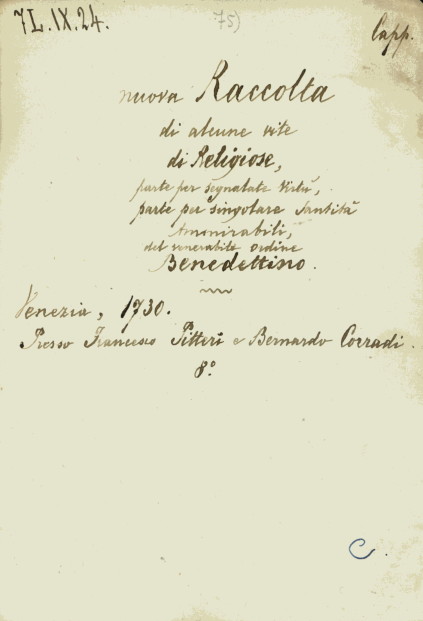 7L.IX.24.
75)
Capp.
nuova Raccolta
di alcune vite
di Religiose,
parte per segnalate virtù,
parte per singolare santità
Ammirabili,
del venerabile ordine
Benedettino.
Venezia, 1730.
Presso Francesco Pitteri e Bernardo Corradi.
8.º
C.